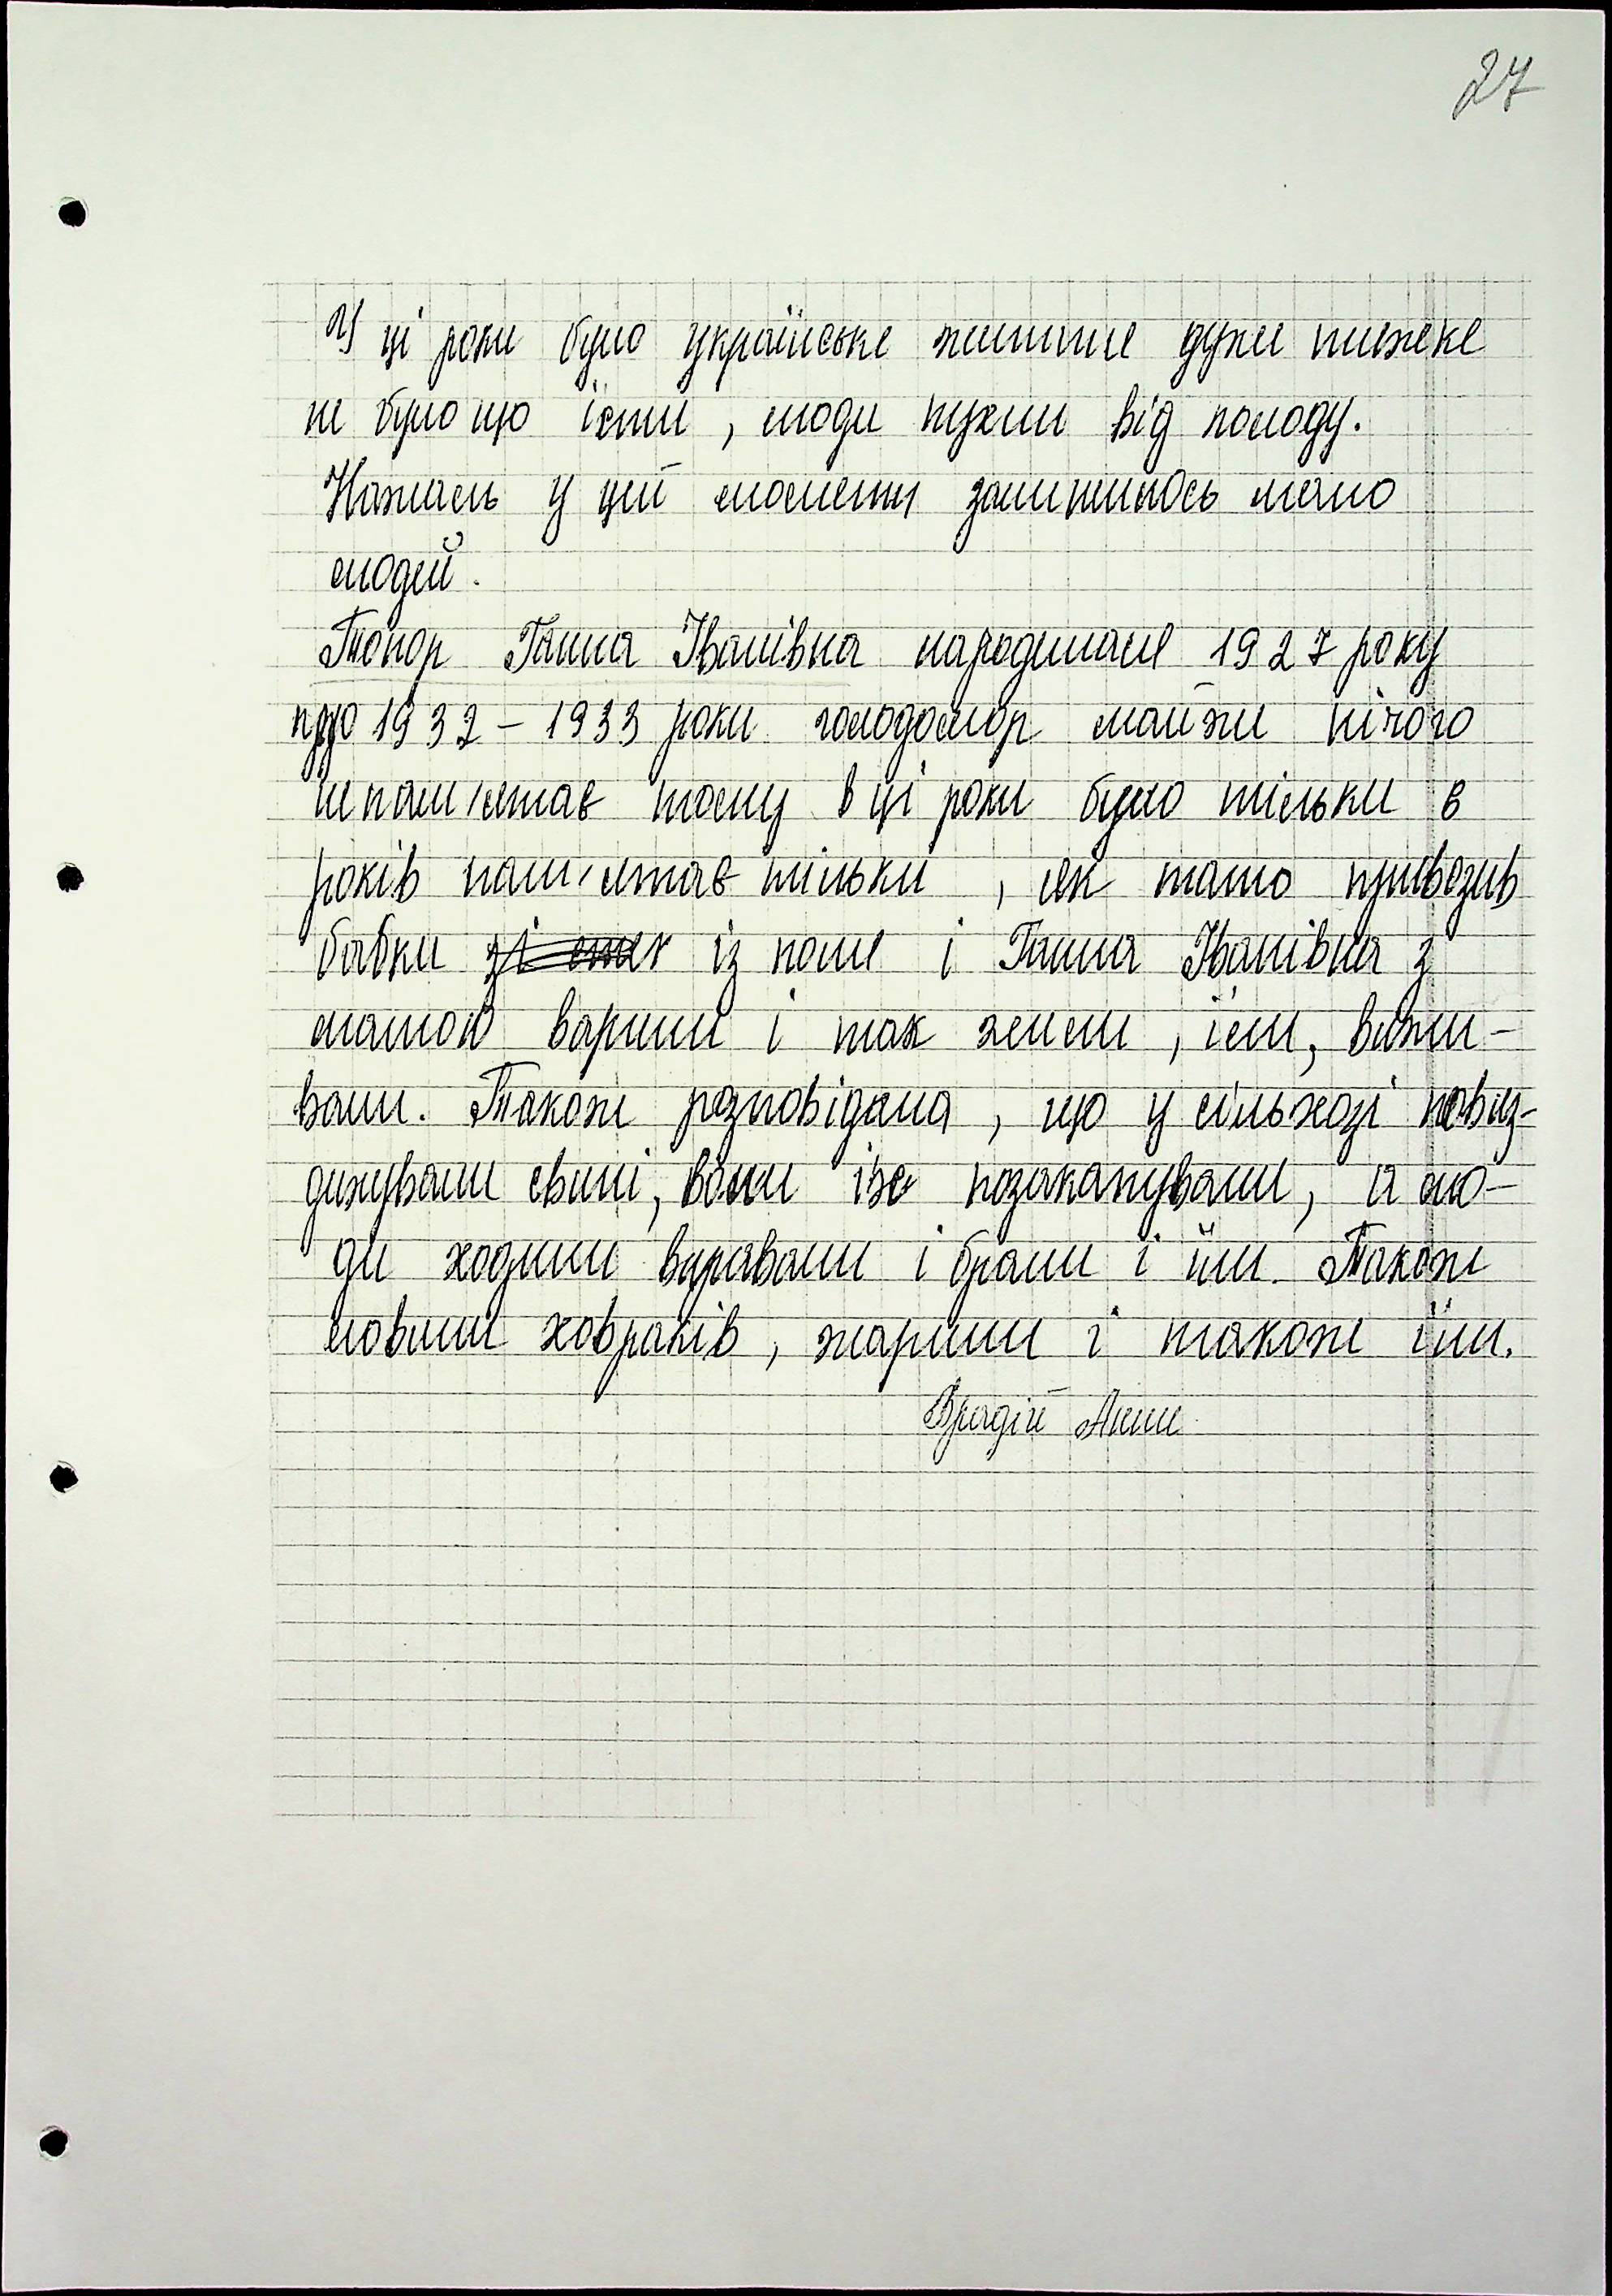 27
У ці роки було українське життя дуже тяжеке
не було що їсти, люди пухли від голоду.
Нажаль у цей моменту залишилось мало
людей.
Топор Ганна Іванівна народилася 1927 року
про 1932-1933 роки голодомор майже нічого
не пам'ятає тому в ці роки було тільки 6
років пам'ятає тільки, як тато привозив
бабки із поля і Ганна Іванівна з
матою варили і так жели, їли, вижи-
вали. Також розповідала, що у сільхозі
свині, вони їхе позакапували, а лю-
ди ходили виривали і брали і їли. Також
ловили ховрахів, жарили і також їли.
Врадій Анни